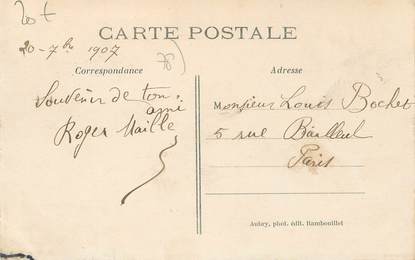 20 €
CARTE POSTALE
20 - 7bre 1907
78)
Correspondance
Adresse
Souvenir de ton
ami
Roger Maille
Monsieur Louis Bochet
5 rue Bailleul
Paris
Aubry, phot. édit. Rambouillet